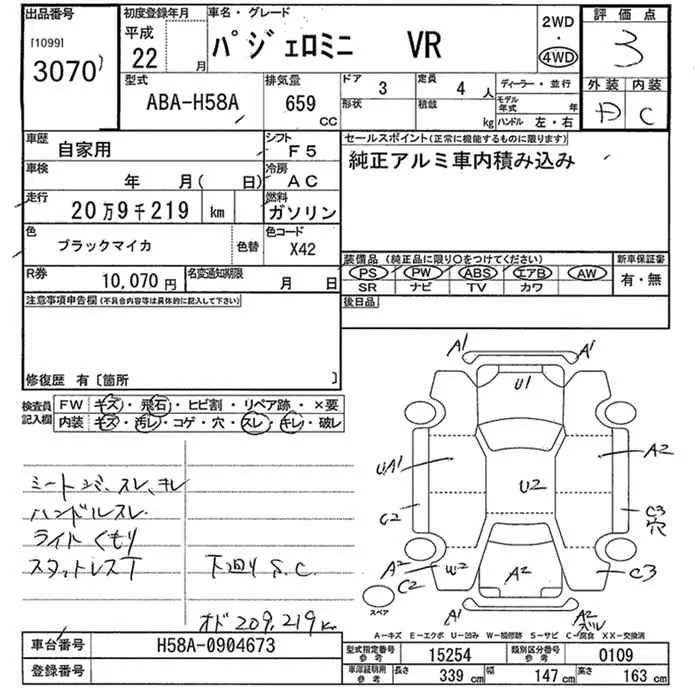 出品番号 初度登録年月 車名・グレード 2WD 評価点
[1099] 平成 パジェロミニ VR ・
3070 22 月 4WD 3
型式 排気量 ドア 3 定員 4 人 ディーラー・並行 外装 内装
ABA-H58A 659 cc 形状 積載 kg モデル年式 年 D C
ハンドル 左・右
車歴 自家用 シフト F5 セールスポイント(正常に機能するものに限ります)
車検 年 月( 日) 冷房 AC 純正アルミ車内積み込み
走行 20万9千219 km 燃料 ガソリン
色 ブラックマイカ 色替 色コード X42
装備品(純正品に限り○をつけてください) 新車保証書
R券 10,070円 名変通知期限 月 日 PS PW ABS エアB AW 有・無
SR ナビ TV カワ
注意事項申告欄(不具合内容等は具体的に記入して下さい) 後日品
修復歴 有〔箇所 〕
検査員記入欄 FW キズ・飛石・ヒビ割・リペア跡・×要
内装 キズ・汚レ・コゲ・穴・スレ・キレ・破レ
ハンドルスレ
ライトくもり
スタットレスT 下回りS.C.
オド209,219K
A1 A1
U1
UA1 A2
U2
C2 C3
穴
A2 W2 A2 C3
C2
スペア
A1 A2
A-キズ E-エクボ U-凹み W-補修跡 S-サビ C-腐食 XX-交換済
車台番号 H58A-0904673 型式指定番号 参考 15254 類別区分番号 参考 0109
登録番号 車庫証明用 参考 長さ 339 cm 幅 147 cm 高さ 163 cm